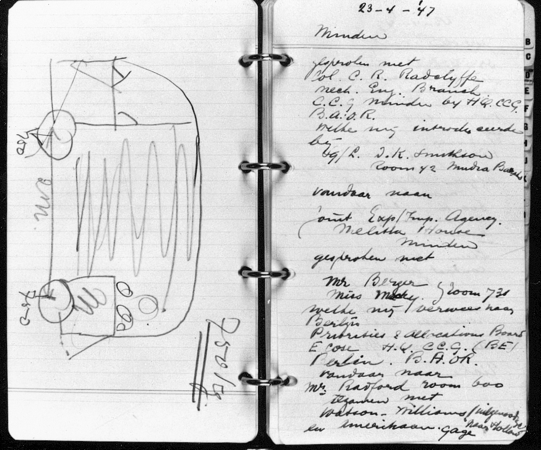 750
2m
750
2500 kg
23-4-'47
Minden
gesproken met
Col. C. R. Radclyffe
Mech. Eng. Branch.
C.C.G Minden by HQ. CCG.
B.A.O.R.
welke mij introduceerde
bij
J.K. Smithson
Room 42 Mudra Barracks
vandaar naar
joint Exp/Imp. Agency.
Melitta House
Minden
gesproken met
Mr Berger
Miss room 731
welke mij verwees naar
Berlijn
Priorities & Allocations Board
Econ H.Q. C.C.G. (BE)
Berlin. B.A.O.R.
vandaar naar
Mr. Radford room 600
tezamen met
Watson-Williams
en Amerikaan. Gage
B
C
D
E
F